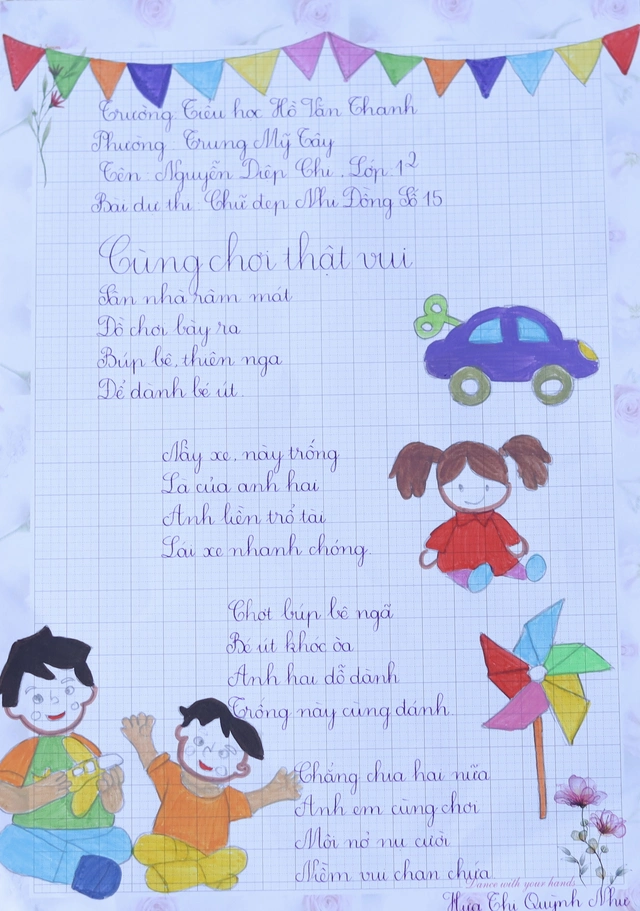 Trường Tiểu học Hồ Văn Thanh
Phường Trung Mỹ Tây
Tên Nguyễn Diệp Chi. Lớp 1²
Bài dự thi Chữ đẹp Nhi Đồng Số 15
Cùng chơi thật vui
Sân nhà râm mát
Đồ chơi bày ra
Búp bê, thiên nga
Để dành bé út.
Nầy xe, này trống
Là của anh hai
Anh liền trổ tài
Lái xe nhanh chóng.
Chợt búp bê ngã
Bé út khóc òa
Anh hai dỗ dành
Trống này cùng đánh.
Chẳng chia hai nữa
Anh em cùng chơi
Môi nở nụ cười
Niềm vui chan chứa.
Dance with your hands
Hứa Thị Quỳnh Như